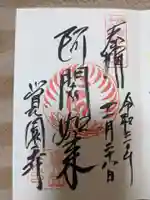 奉拝
令和三年
十二月二十八日
阿閦如来
覚園寺